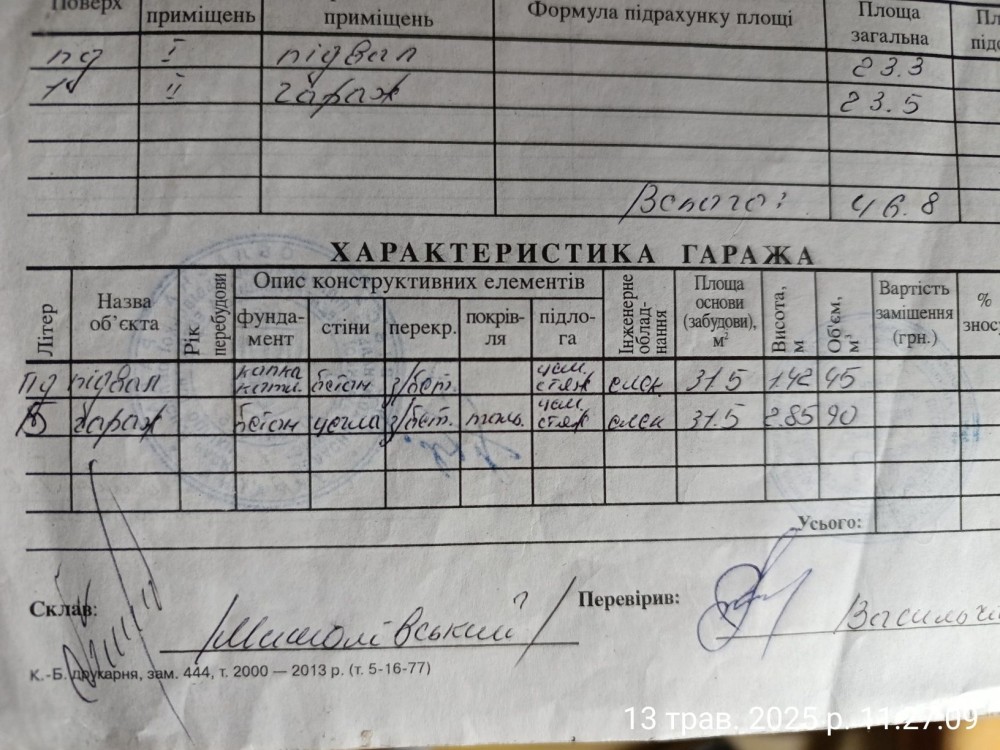 Поверх приміщень приміщень Формула підрахунку площі Площа загальна
пд I підвал 23.3
1 II гараж 23.5
Всього: 46.8
ХАРАКТЕРИСТИКА ГАРАЖА
Літер Назва об'єкта Рік перебудови Опис конструктивних елементів Інженерне облад- нання Площа основи (забудови), м² Висота, м Об'єм, м³ Вартість заміщення (грн.) %
фунда- мент стіни перекр. покрів- ля підло- га
пд підвал бетон з/бет. цем. стяж елек 31.5 1.42 45
Б гараж бетон цегла з/бет. цем. стяж елек 31.5 2.85 90
Усього:
Склав:
Перевірив:
К.-Б. друкарня, зам. 444, т. 2000 — 2013 р. (т. 5-16-77)
13 трав. 2025 р. 11:27:09